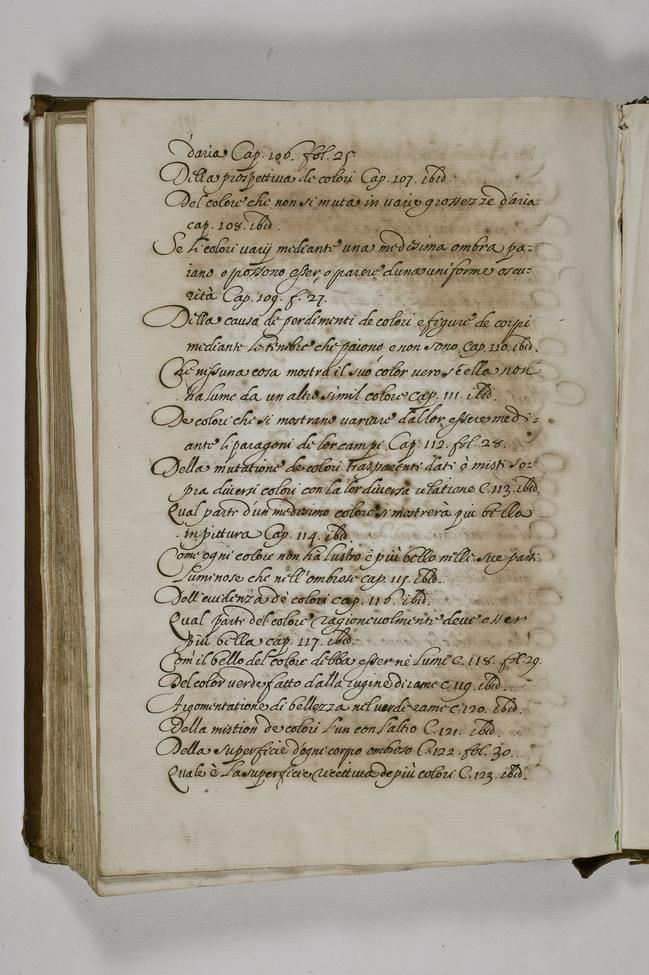 d'aria Cap. 106. fol. 25.
Della prospettiva de colori Cap. 107. ibid.
Del colore che non si muta in varie grossezze d'aria
cap. 108. ibid.
Se li colori varij mediante una medesima ombra pa:
iano, o possono esser, o parere d'una uniforme oscu:
rità Cap. 109. f. 27.
Della causa de perdimenti de colori e figure de corpi
mediante le tenebre che paiono e non sono Cap. 110. ibid.
Che nissuna cosa mostra il suo color vero s'ella non
ha lume da un altro simil colore cap. 111. ibid.
De colori che si mostrano variare dal lor essere medi:
ante li paragoni de lor campi Cap. 112. fol. 28.
Della mutatione de colori trasparenti dati o misti so:
pra diversi colori con la lor diversa relatione C. 113. ibid.
Qual parte d'un medesimo colore si mostrerà più bella
in pittura Cap. 114. ibid.
Come ogni colore non ha lustro è più bello nelle sue parti
luminose che nell'ombrose cap. 115. ibid.
Dell'evidenza de colori cap. 116. ibid.
Qual parte del colore ragionevolmente deve esser
più bella cap. 117. ibid.
Com'il bello del colore debba esser nè lumi C. 118. fol. 29.
Del color verde fatto dalla rugine di rame C. 119. ibid.
Argomentatione di bellezza nel verde rame C. 120. ibid.
Della mistion de colori l'un con l'altro C. 121. ibid.
Della superficie d'ogni corpo ombroso C. 122. fol. 30.
Quale è la superficie recettiva de più colori C. 123. ibid.